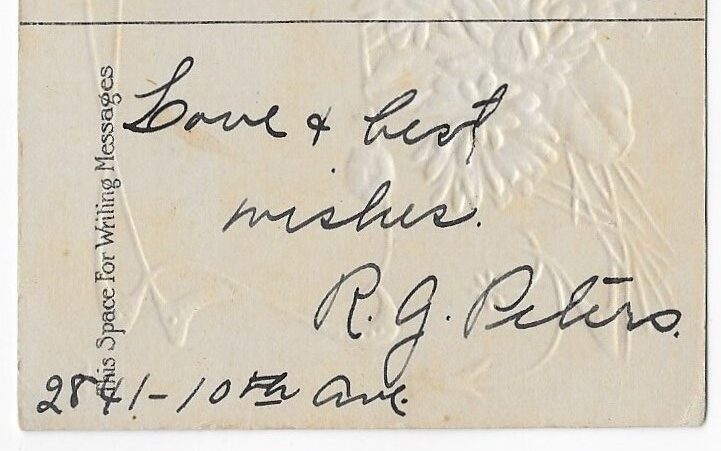 This Space For Writing Messages
Love & best
wishes.
R. G. Peters.
2841-10th Ave.